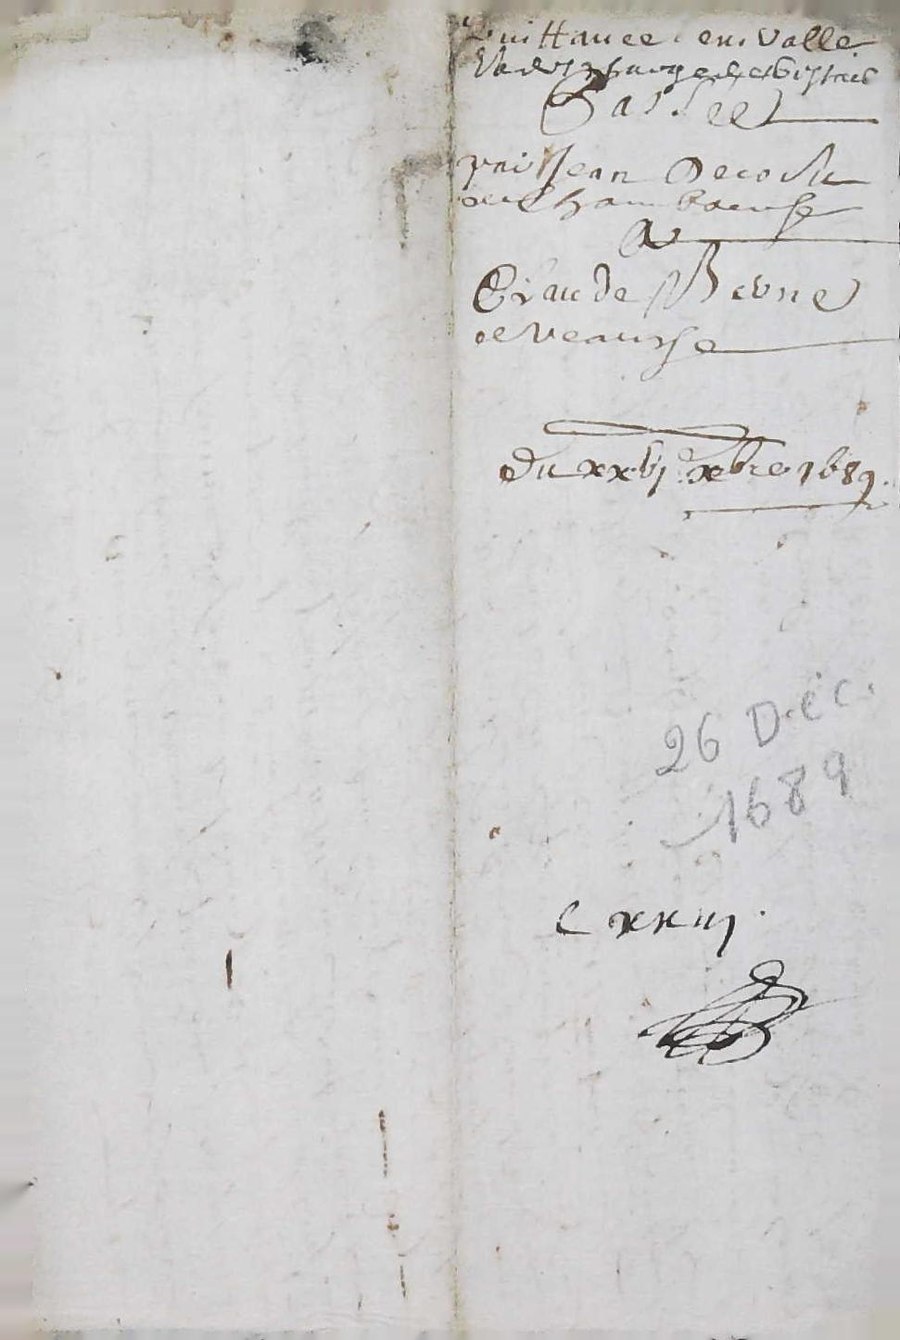 quittance en valle
passee
par Jean Decoste
de Chambaeuf
a
Claude Beune
de veausse
du xxvj xbre 1689.
26 Déc.
1689
C xxiij.